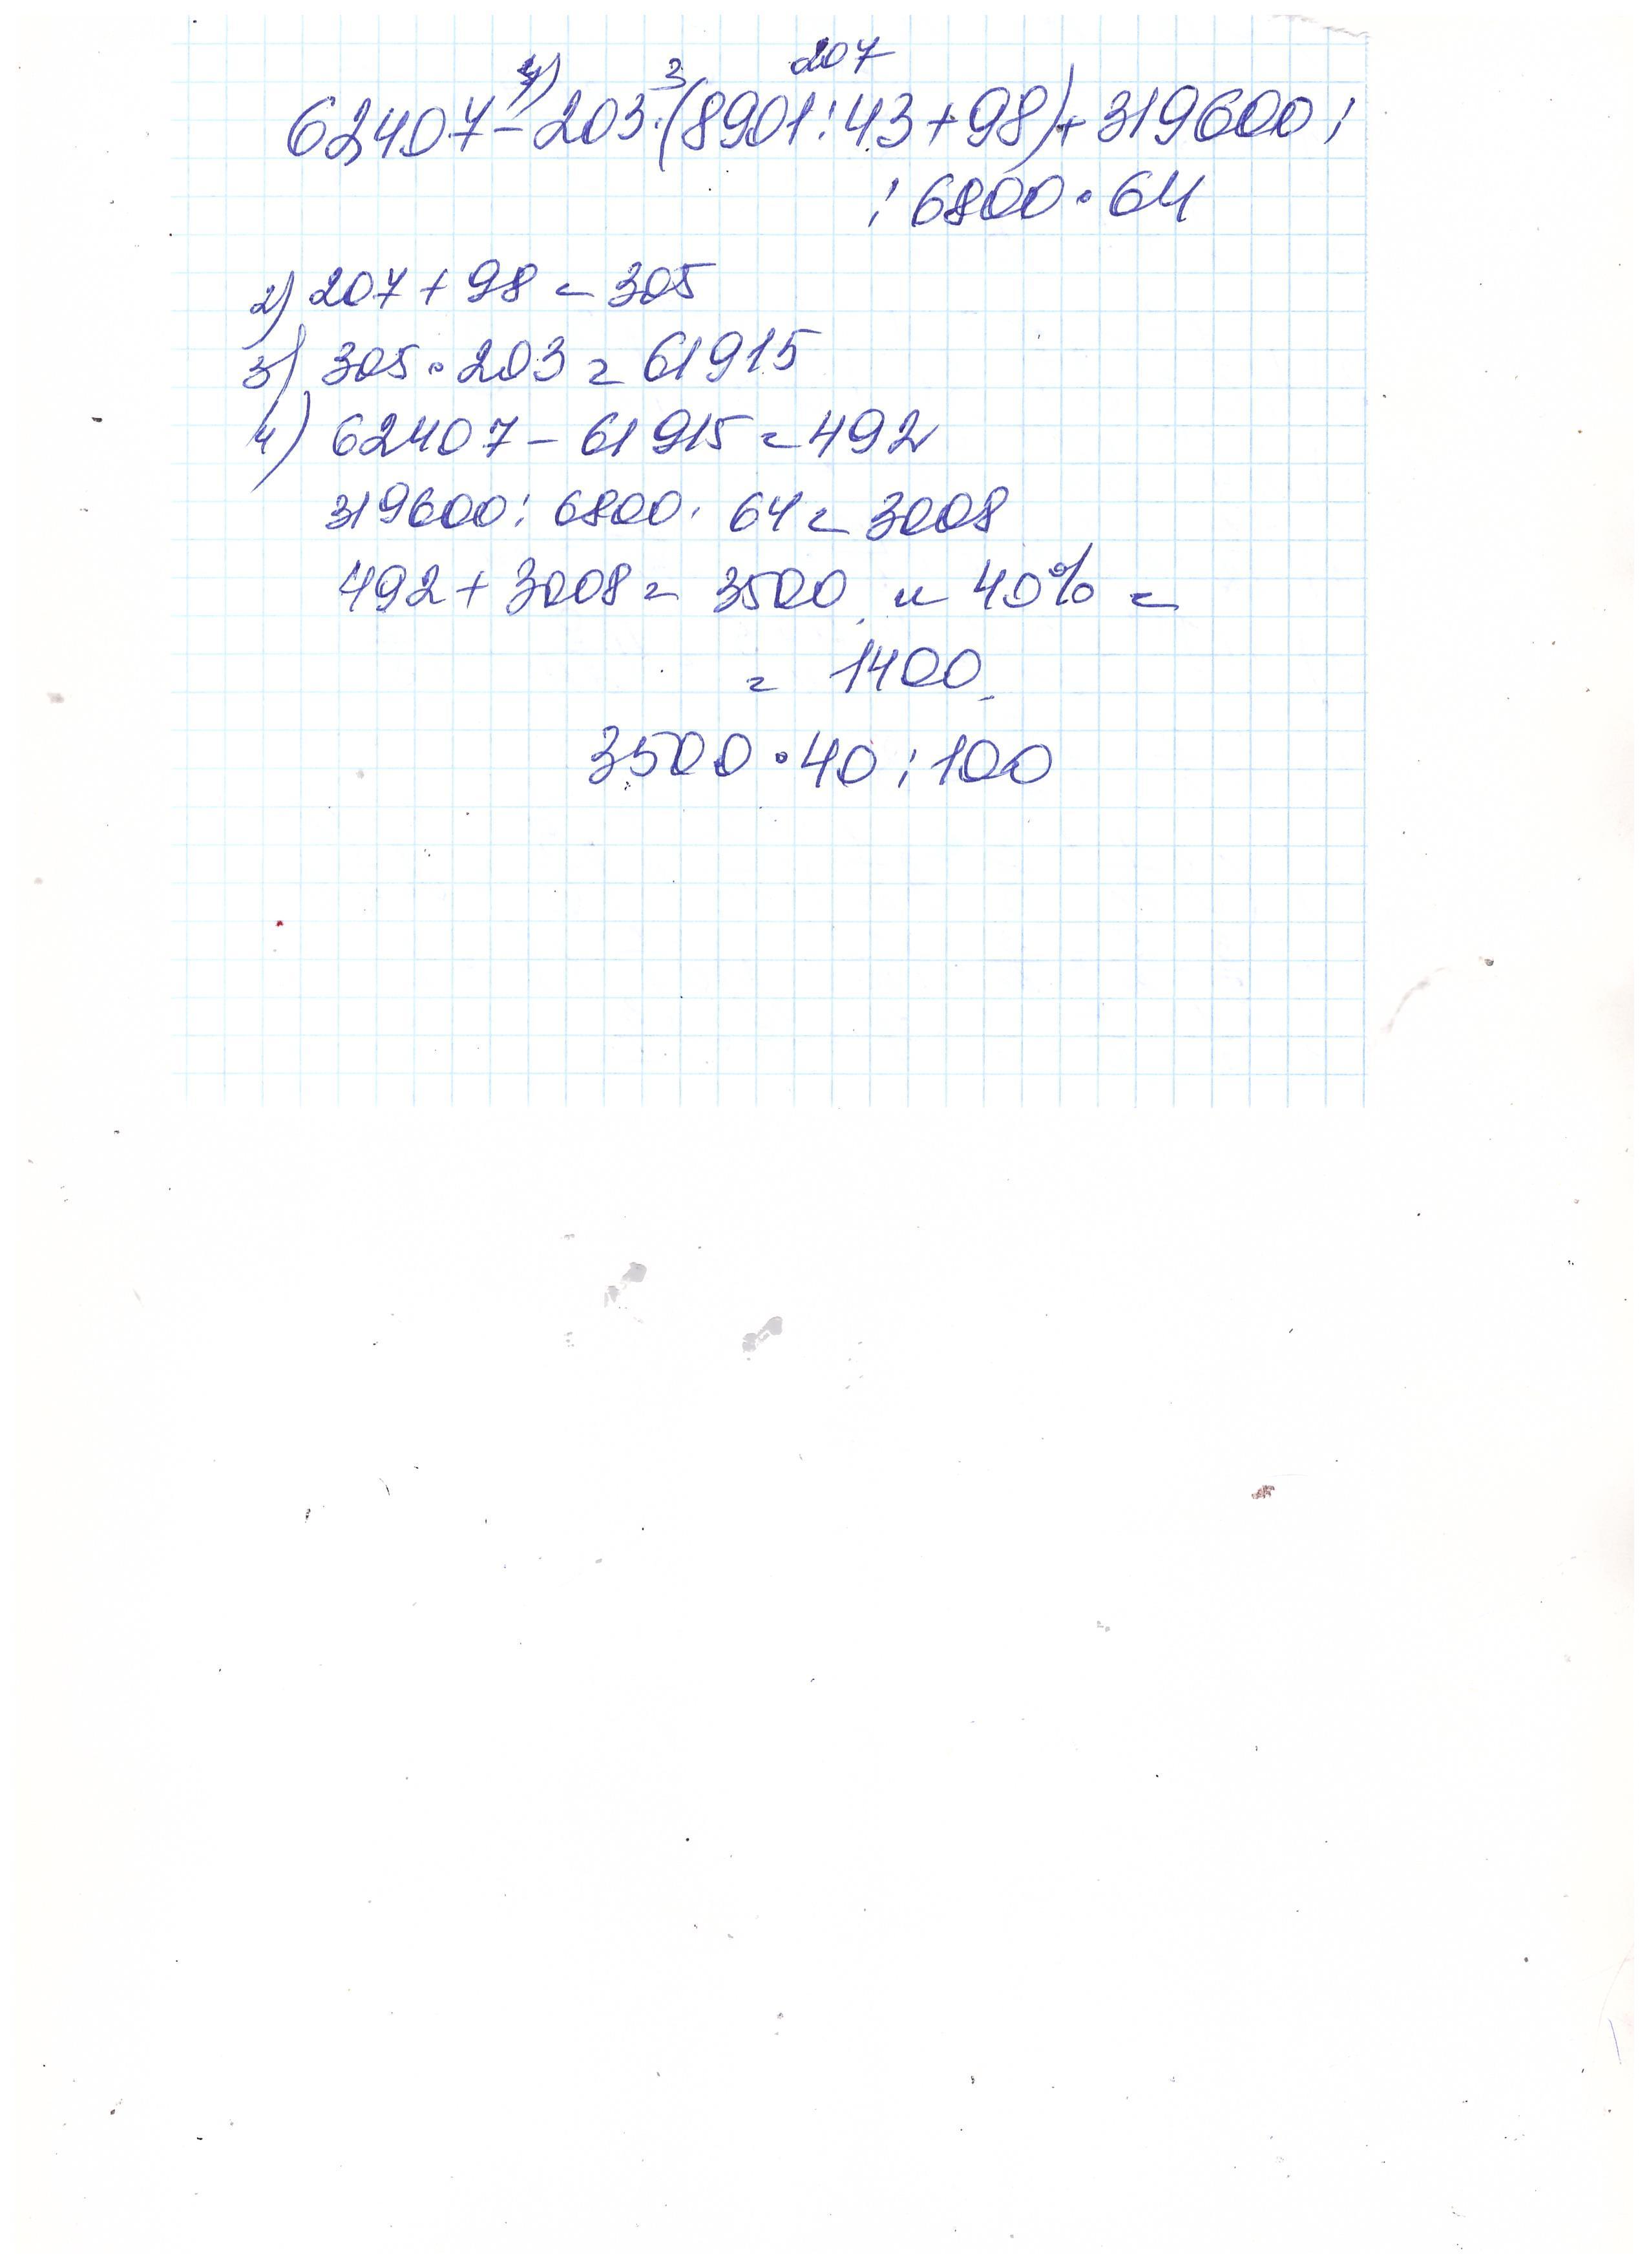 4) 3 207
62407-203·(8901:43+98)+319600:
:6800·64
2) 207+98=305
3) 305·203=61915
4) 62407-61915=492
319600:6800·64=3008
492+3008=3500 и 40%=
= 1400
3500·40:100